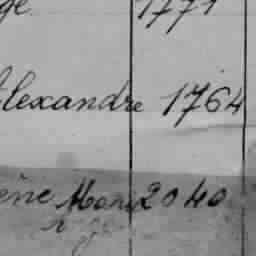 ge 1771
Alexandre 1764
ène Mari 2040